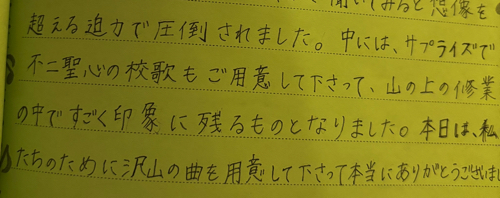 聞いてみると想像を
超える迫力で圧倒されました。中には、サプライズで
不二聖心の校歌もご用意して下さって、山の上の修業
の中ですごく印象に残るものとなりました。本日は、私
たちのために沢山の曲を用意して下さって本当にありがとうございまし